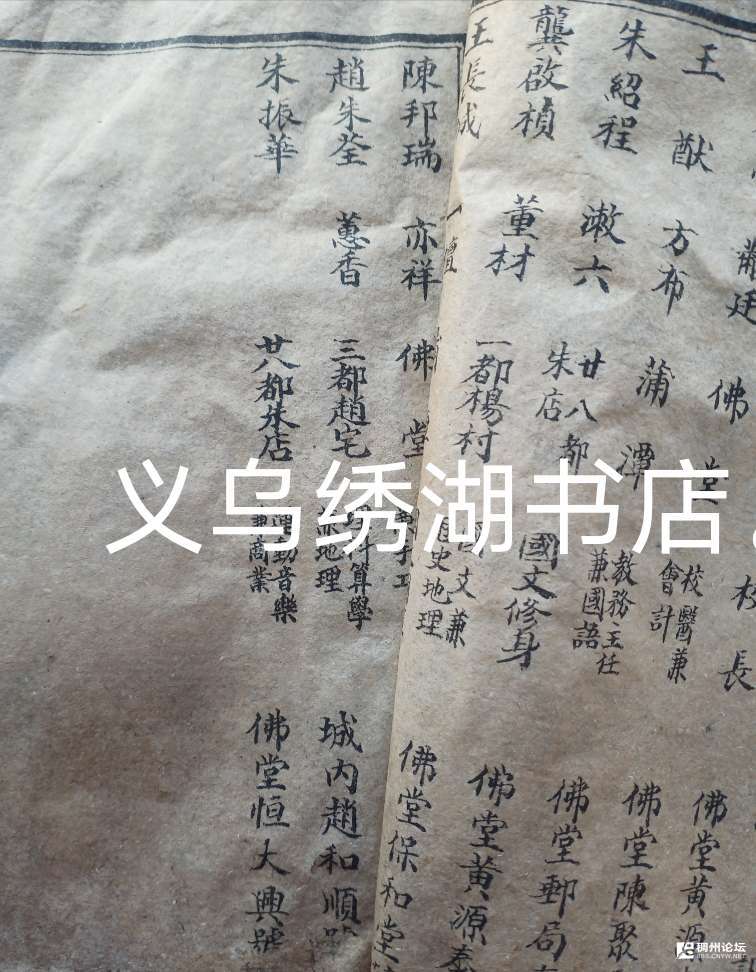 廷 佛堂 校長
王猷 方布 蒲潭 校醫兼會計 佛堂黄源
朱紹程 漱六 廿八都朱店 教務主任兼國語 佛堂陳聚
龔啟楨 董材 一都楊村 國文修身 佛堂郵局
王 兼 史地理 佛堂黄源泰
陳邦瑞 亦祥 佛堂 手工 佛堂保和堂
趙朱荃 蕙香 三都趙宅 算學 地理 城内趙和順號
朱振華 廿八都朱店 運動音樂 商業 佛堂恒大興號
义乌绣湖书店
稠州论坛
BBS.CNYW.NET